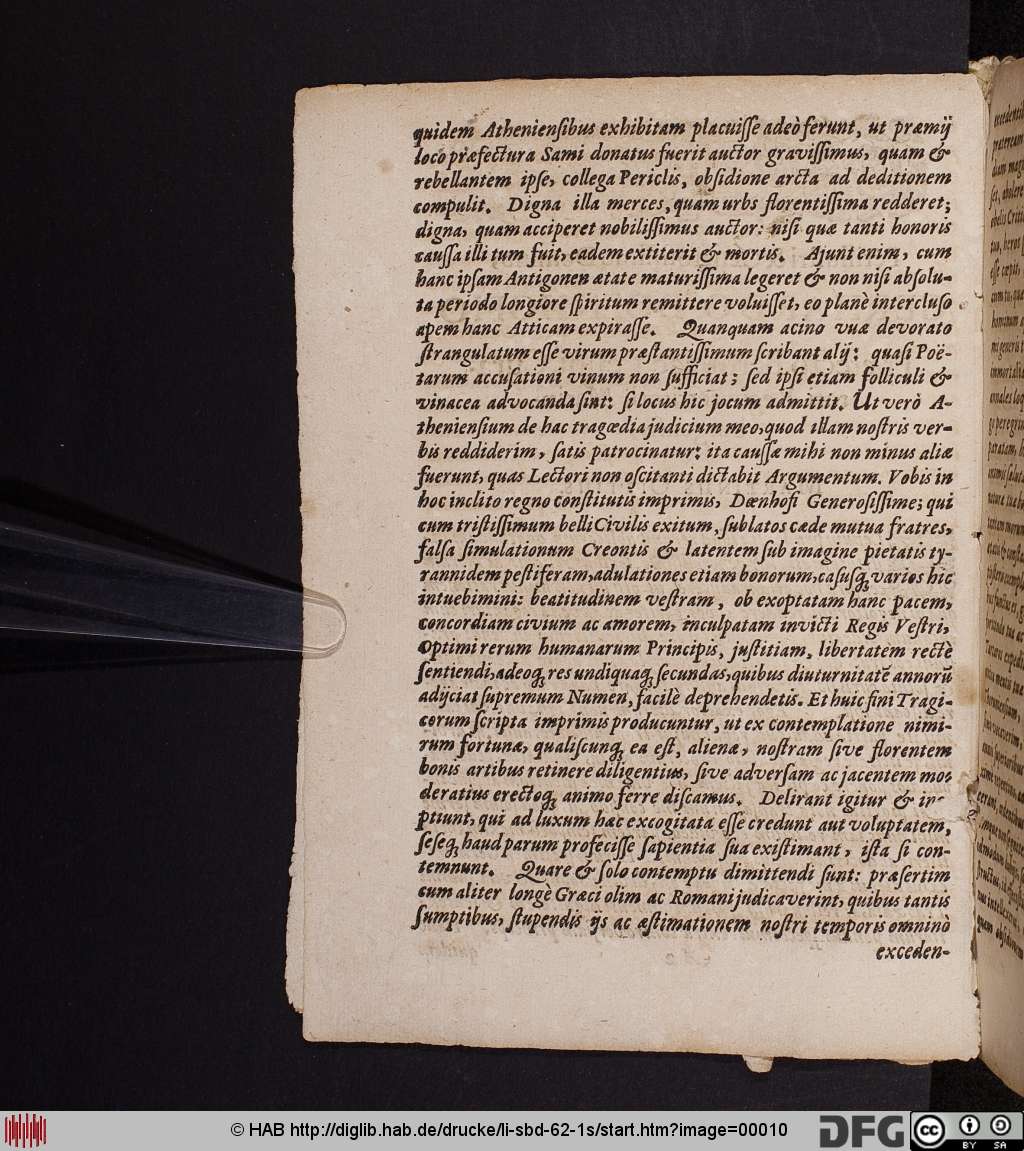 quidem Atheniensibus exhibitam placuiſſe adeò ferunt, ut præmij
loco præfectura Sami donatus fuerit auctor graviſſimus, quam &
rebellantem ipſe, collega Periclis, obſidione arcta ad deditionem
compulit. Digna illa merces, quam urbs florentiſſima redderet;
digna, quam acciperet nobiliſſimus auctor: niſi quæ tanti honoris
cauſſa illi tum fuit, eadem extiterit & mortis. Ajunt enim, cum
hanc ipſam Antigonen ætate maturiſſima legeret & non niſi abſolu-
ta periodo longiore ſpiritum remittere voluiſſet, eo planè intercluſo
apem hanc Atticam expiraſſe. Quanquam acino vuæ devorato
ſtrangulatum eſſe virum præſtantiſſimum ſcribant alij: quaſi Poë-
tarum accuſationi vinum non ſufficiat; ſed ipſi etiam folliculi &
vinacea advocanda ſint: ſi locus hic jocum admittit. Ut verò A-
thenienſium de hac tragœdia judicium meo, quod illam noſtris ver-
bis reddiderim, ſatis patrocinatur: ita cauſſæ mihi non minus aliæ
fuerunt, quas Lectori non oſcitanti dictabit Argumentum. Vobis in
hoc inclito regno conſtitutis imprimis, Dænhofi Generoſiſſime; qui
cum triſtiſſimum belli Civilis exitum, ſublatos cæde mutua fratres,
falſa ſimulationum Creontis & latentem ſub imagine pietatis ty-
rannidem peſtiferam, adulationes etiam bonorum, caſusq; varios hic
intuebimini: beatitudinem veſtram, ob exoptatam hanc pacem,
concordiam civium ac amorem, inculpatam invicti Regis Veſtri,
Optimi rerum humanarum Principis, juſtitiam, libertatem rectè
ſentiendi, adeoq; res undiquaq; ſecundas, quibus diuturnitatē annorū
adijciat ſupremum Numen, facilè deprehendetis. Et huic fini Tragi-
corum ſcripta imprimis producuntur, ut ex contemplatione nimi-
rum fortunæ, qualiſcunq; ea eſt, alienæ, noſtram ſive florentem
bonis artibus retinere diligentius, ſive adverſam ac jacentem mo-
deratius erectoq; animo ferre diſcamus. Delirant igitur & in-
ptiunt, qui ad luxum hæc excogitata eſſe credunt aut voluptatem,
ſeſeq; haud parum profeciſſe ſapientia ſua exiſtimant, iſta ſi con-
temnunt. Quare & ſolo contemptu dimittendi ſunt: præſertim
cum aliter longè Græci olim ac Romani judicaverint, quibus tantis
ſumptibus, ſtupendis ijs ac æſtimationem noſtri temporis omninò
exceden-
© HAB http://diglib.hab.de/drucke/li-sbd-62-1s/start.htm?image=00010
DFG
cc BY SA